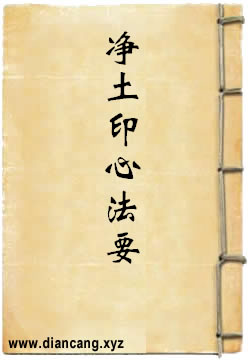 净土印心法要
www.diancang.xyz